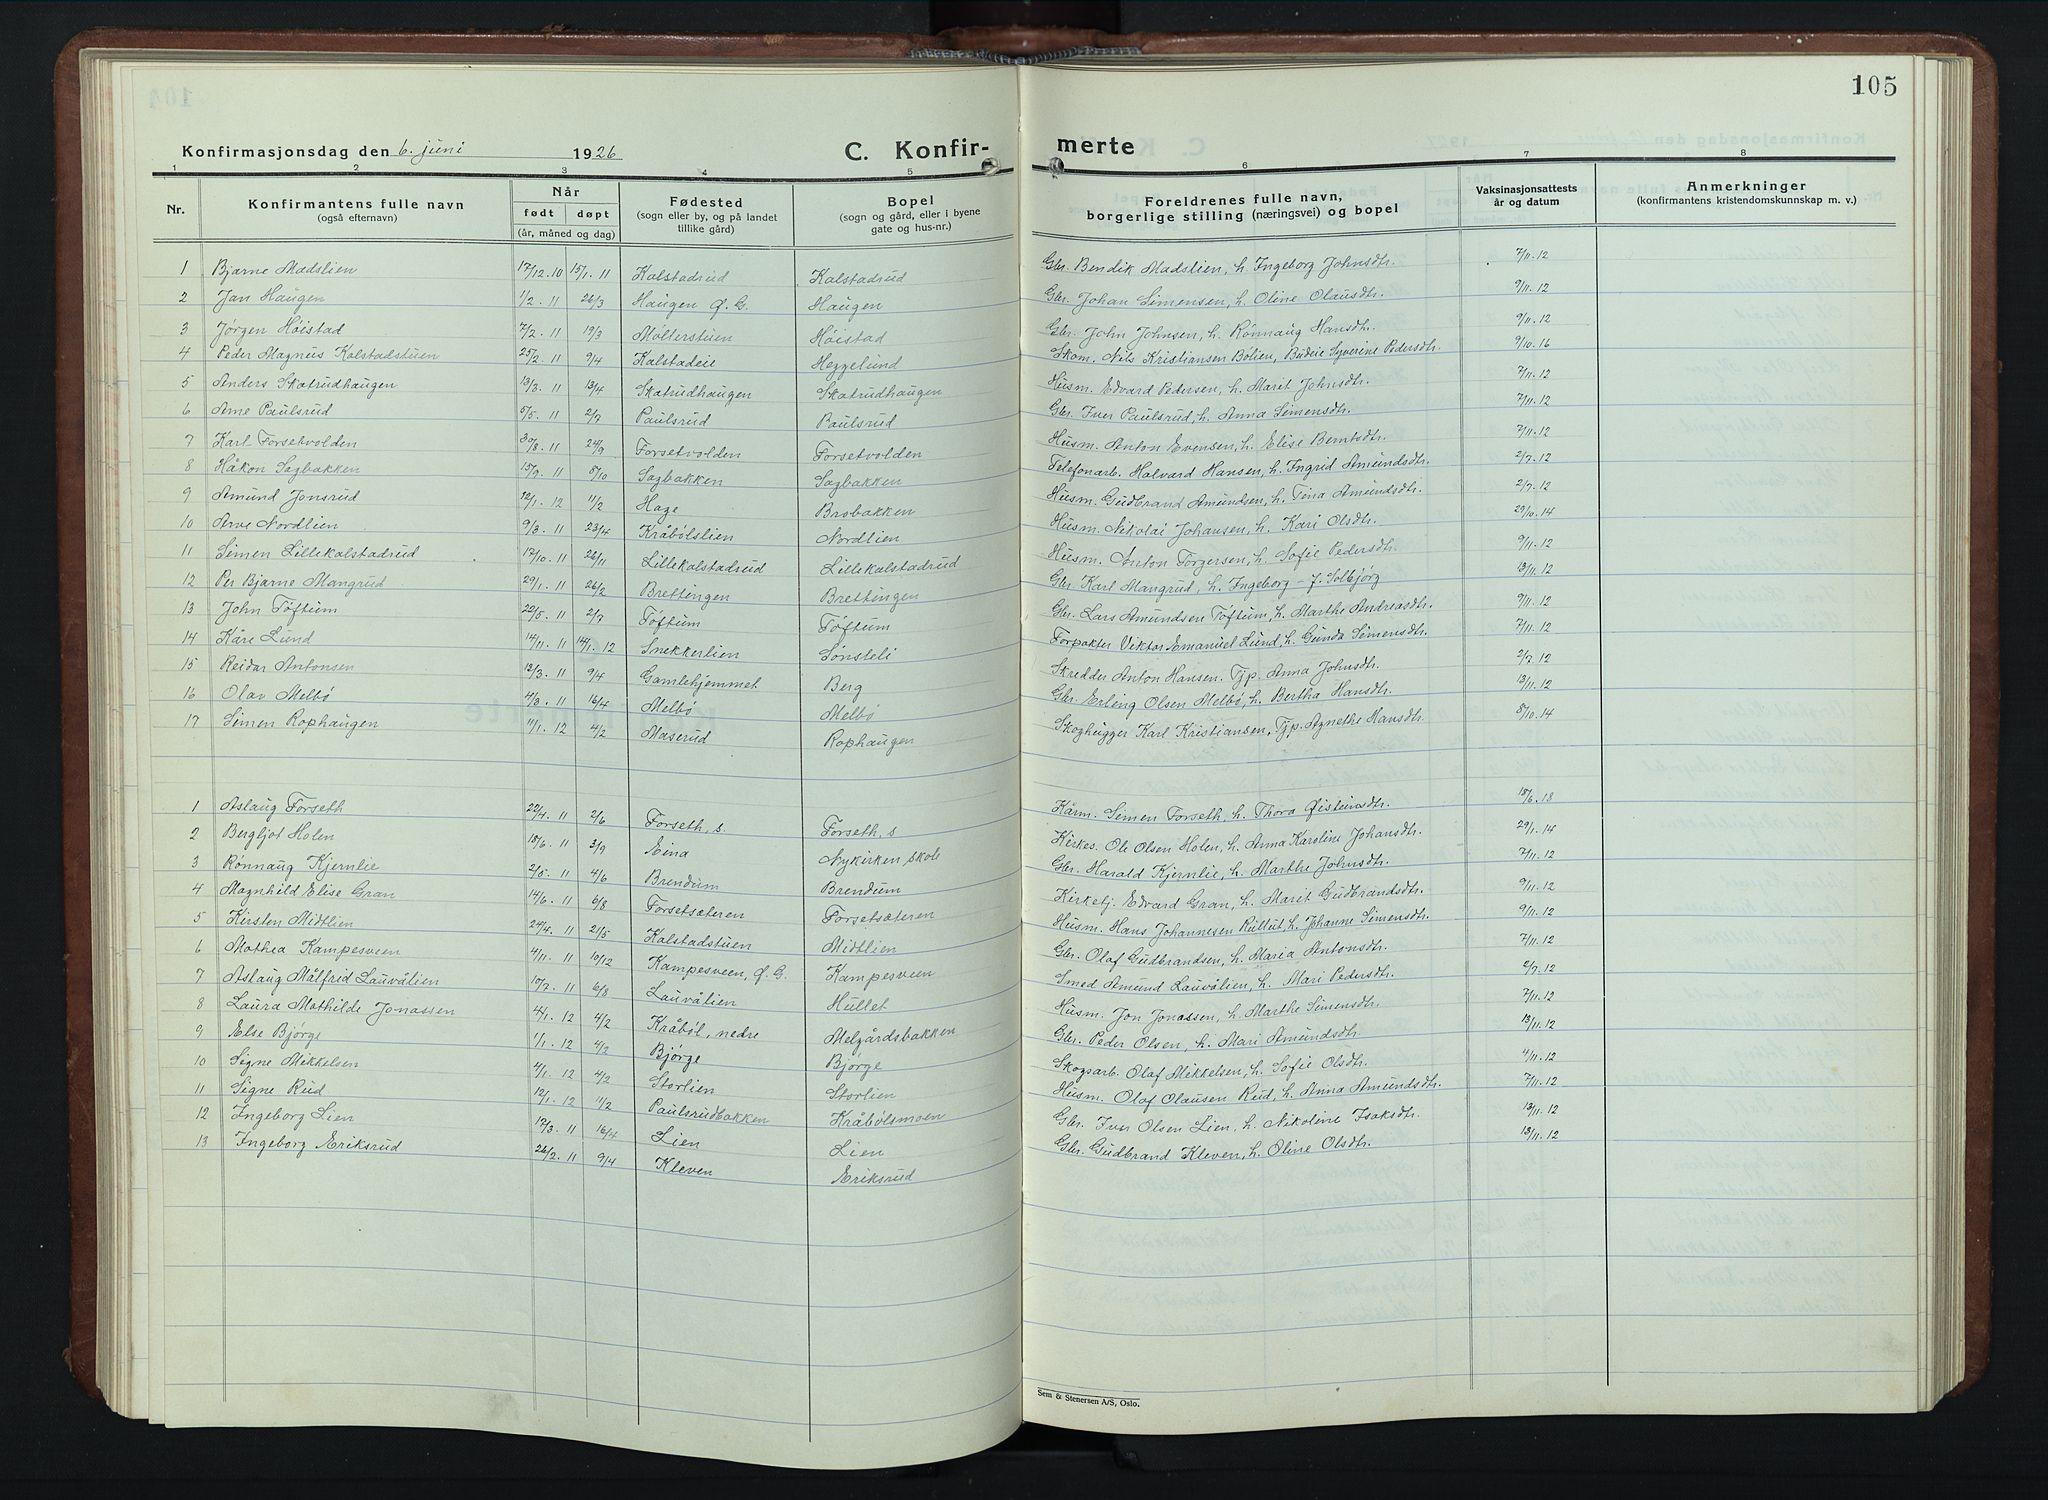 105
Konfirmasjonsdag den 6. juni 1926 C. Konfir- merte
1 2 3 4 5 6 7 8
Nr. Konfirmantens fulle navn (også efternavn) Når født døpt (år, måned og dag) Fødested (sogn eller by, og på landet tillike gård) Bopel (sogn og gård, eller i byene gate og hus-nr.) Foreldrenes fulle navn, borgerlige stilling (næringsvei) og bopel Vaksinasjonsattests år og datum Anmerkninger (konfirmantens kristendomskunnskap m. v.)
1 Bjarne Madslien 17/12.10 15/1.11 Kalstadrud Kalstadrud Gbr. Bendik Madslien, h. Ingeborg Johnsdtr. 7/11.12
2 Jan Haugen 1/2.11 26/3 Haugen Ø.G. Haugen Gbr. Johan Simensen, h. Oline Olausdtr. 9/11.12
3 Jørgen Høistad 7/2.11 19/3 Molterstuen Høistad Gbr. John Johnsen, h. Rønnaug Hansdtr. 9/11.12
4 Peder Magnus Kalstadstuen 25/2.11 9/4 Kalstadeie Heggelund Skom. Nils Kristiansen Bolien, Budeie Syverine Pedersdtr. 9/10.16
5 Anders Skatrudhaugen 13/3.11 13/4 Skatrudhaugen Skatrudhaugen Husm. Edvard Pedersen, h. Marit Johnsdtr. 7/11.12
6 Arne Paulsrud 5/5.11 2/7 Paulsrud Paulsrud Gbr. Iver Paulsrud, h. Anna Simensdtr. 7/11.12
7 Karl Forsetvolden 30/8.11 24/9 Forsetvolden Forsetvolden Husm. Anton Evensen, h. Elise Berntsdtr. 7/11.12
8 Håkon Sagbakken 15/9.11 8/10 Sagbakken Sagbakken Telefonarb. Halvard Hansen, h. Ingrid Amundsdtr. 2/7.12
9 Amund Jonsrud 12/1.12 11/2 Hage Brobakken Husm. Gudbrand Amundsen, h. Tina Amundsdtr. 2/7.12
10 Arve Nordlien 9/3.11 23/4 Kråbølslien Nordlien Husm. Nikolai Johansen, h. Kari Olsdtr. 29/10.14
11 Simen Lillekalstadrud 17/10.11 26/11 Lillekalstadrud Lillekalstadrud Husm. Anton Torgersen, h. Sofie Pedersdtr. 9/11.12
12 Per Bjarne Mangrud 29/1.11 26/2 Brettingen Brettingen Gbr. Karl Mangrud, h. Ingeborg f. Solbjørg 13/11.12
13 John Tøftum 22/5.11 2/7 Tøftum Tøftum Gbr. Lars Amundsen Tøftum, h. Marthe Andreasdtr. 9/11.12
14 Kåre Lund 14/11.11 14/1.12 Snekkerlien Sønsteli Forpakter Viktor Emanuel Lund, h. Gunda Simensdtr. 7/11.12
15 Reidar Antonsen 12/3.11 9/4 Gamlehjemmet Berg Skredder Anton Hansen. Tjp. Anna Johnsdtr. 2/7.12
16 Olav Melbø 4/3.11 16/4 Melbø Melbø Gbr. Erling Olsen Melbø, h. Bertha Hansdtr. 13/11.12
17 Simen Rophaugen 11/1.12 4/2 Maserud Rophaugen Skoghugger Karl Kristiansen, Tjp. Agnethe Hansdtr. 8/10.14
1 Aslaug Forseth 22/4.11 2/6 Forseth, s. Forseth, s Kårm. Simen Forseth, h. Thora Øisteinsdtr. 15/6.18
2 Bergljot Holen 18/6.11 3/9 Eina Nykirken skole Kirkes. Ole Olsen Holen, h. Anna Karoline Johansdtr. 29/1.14
3 Rønnaug Kjernlie 2/5.11 4/6 Brendum Brendum Gbr. Harald Kjernlie, h. Marthe Johnsdtr. 7/11.12
4 Magnhild Elise Gran 14/6.11 6/8 Forsetsæteren Forsetsæteren Kirketj. Edvard Gran, h. Marit Gudbrandsdtr. 9/11.12
5 Kirsten Midtlien 24/4.11 2/5 Kalstadstuen Midtlien Husm. Hans Johannesen Rullut, h. Johanne Simensdtr. 9/11.12
6 Mathea Kampesveen 4/11.11 10/12 Kampesveen, Ø.G. Kampesveen Gbr. Olaf Gudbrandsen, h. Maria Antonsdtr. 7/11.12
7 Aslaug Målfrid Lauvålien 10/7.11 6/8 Lauvålien Hullet Smed Amund Lauvålien, h. Mari Pedersdtr. 2/7.12
8 Laura Mathilde Jonassen 4/1.12 4/2 Kråbøl, nedre Melgårdsbakken Husm. Jon Jonassen, h. Marthe Simensdtr. 7/11.12
9 Else Bjørge 1/1.12 4/2 Bjørge Bjørge Gbr. Peder Olsen, h. Mari Amundsdtr. 13/11.12
10 Signe Mikkelsen 4/1.12 4/2 Storlien Storlien Skogsarb. Olaf Mikkelsen, h. Sofie Olsdtr. 4/11.12
11 Signe Rud 12/1.12 11/2 Paulsrudbakken Kråbølsmoen Husm. Olaf Olausen Rud, h. Anna Amundsdtr. 7/11.12
12 Ingeborg Lien 17/3.11 16/4 Lien Lien Gbr. Iver Olsen Lien, h. Nikoline Isaksdtr. 13/11.12
13 Ingeborg Eriksrud 26/2.11 9/4 Kleven Eriksrud Gbr. Gudbrand Kleven, h. Oline Olsdtr. 13/11.12
Sem & Stenersen A/S, Oslo.